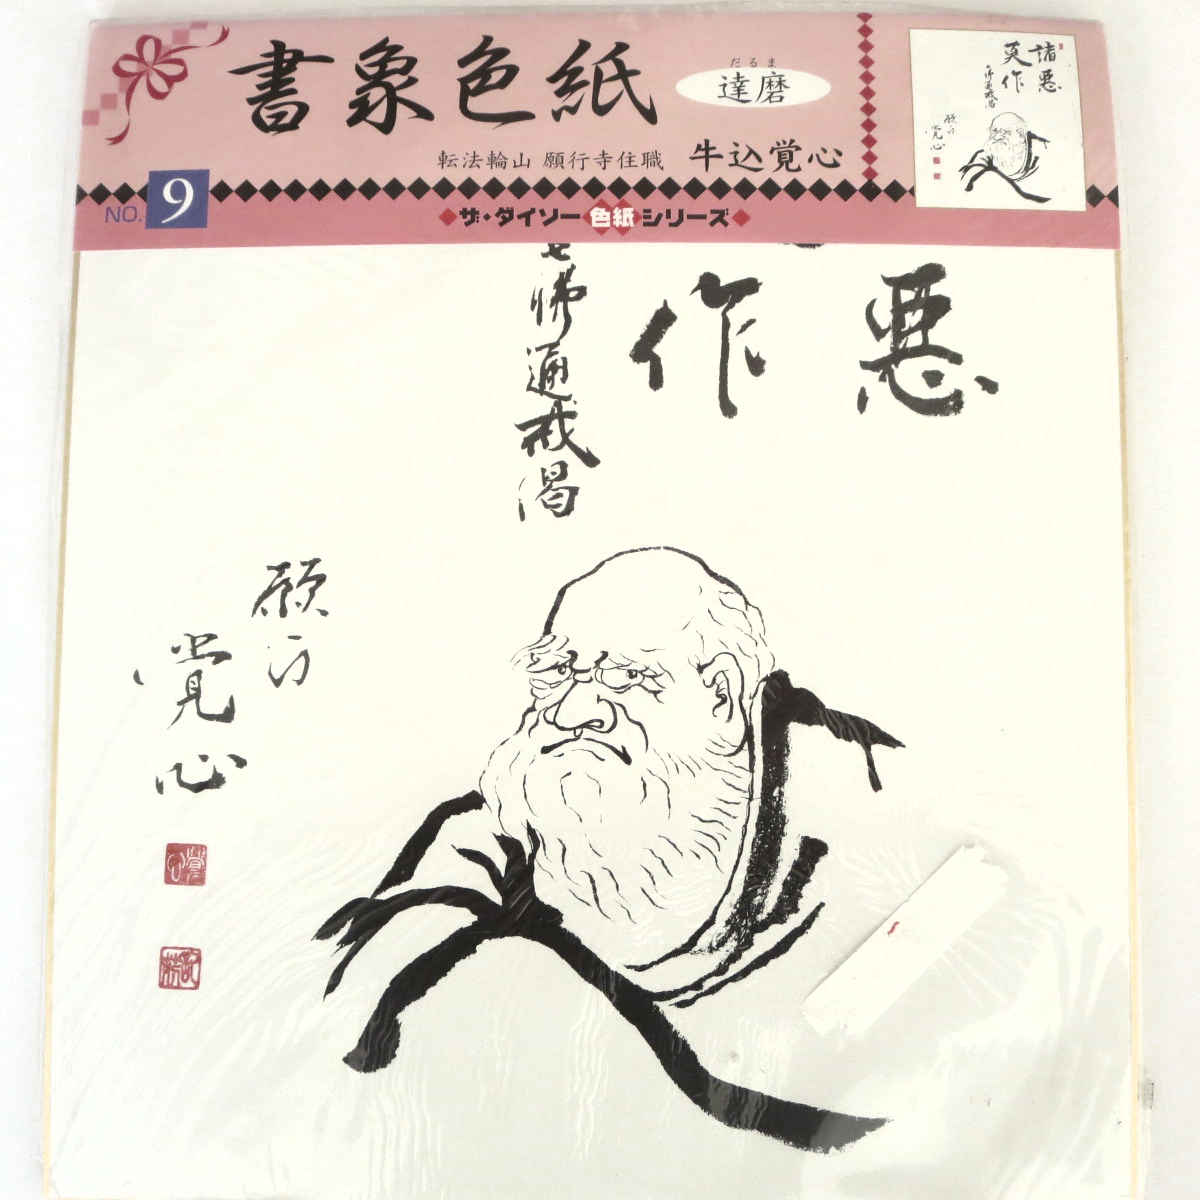 書象色紙
だるま
達磨
転法輪山 願行寺住職 牛込覚心
NO. 9
ザ・ダイソー色紙シリーズ
諸悪
莫作
七佛通戒偈
願行
覚心
悪
作
七佛通戒偈
願行
覚心